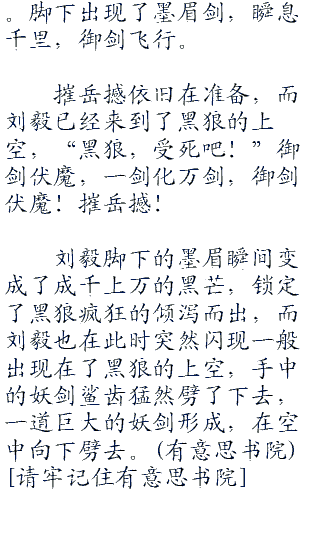 。脚下出现了墨眉剑，瞬息
千里，御剑飞行。
摧岳撼依旧在准备，而
刘毅已经来到了黑狼的上
空，“黑狼，受死吧！”御
剑伏魔，一剑化万剑，御剑
伏魔！摧岳撼！
刘毅脚下的墨眉瞬间变
成了成千上万的黑芒，锁定
了黑狼疯狂的倾泻而出，而
刘毅也在此时突然闪现一般
出现在了黑狼的上空，手中
的妖剑鲨齿猛然劈了下去，
一道巨大的妖剑形成，在空
中向下劈去。(有意思书院)
[请牢记住有意思书院]